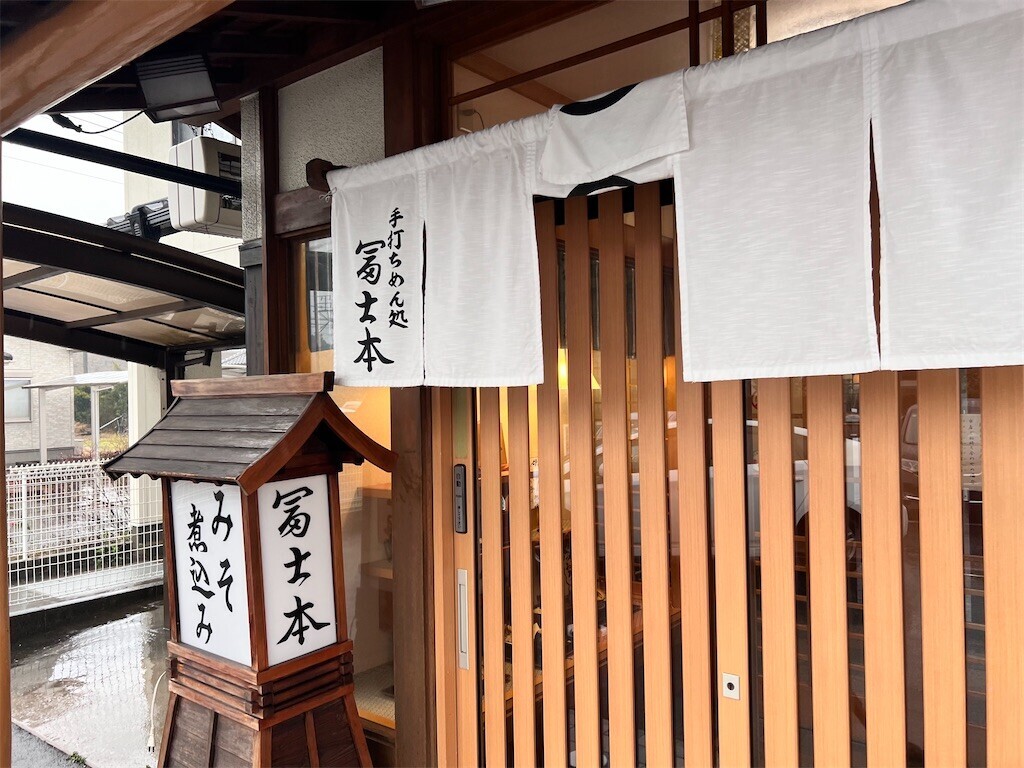 手打ちめん処
冨士本
みそ
煮込み
冨士本